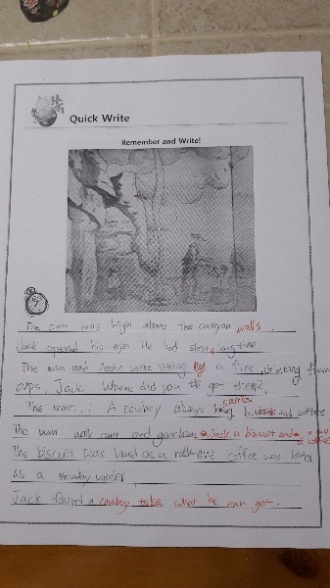 Quick Write
Remember and Write!
The sun was high above the canyon walls.
Jack opend his eye. He had sleep long time.
The man and were sitting by a fire, drinking from
cups. Jack. Where did you get the
The man : A cowboy always carries and coffee
The man walk over and gave Jack a biscuit and a
The biscuit was hard as a rock and coffee was bitter
as a
Jack found a cowboy takes what he can get.